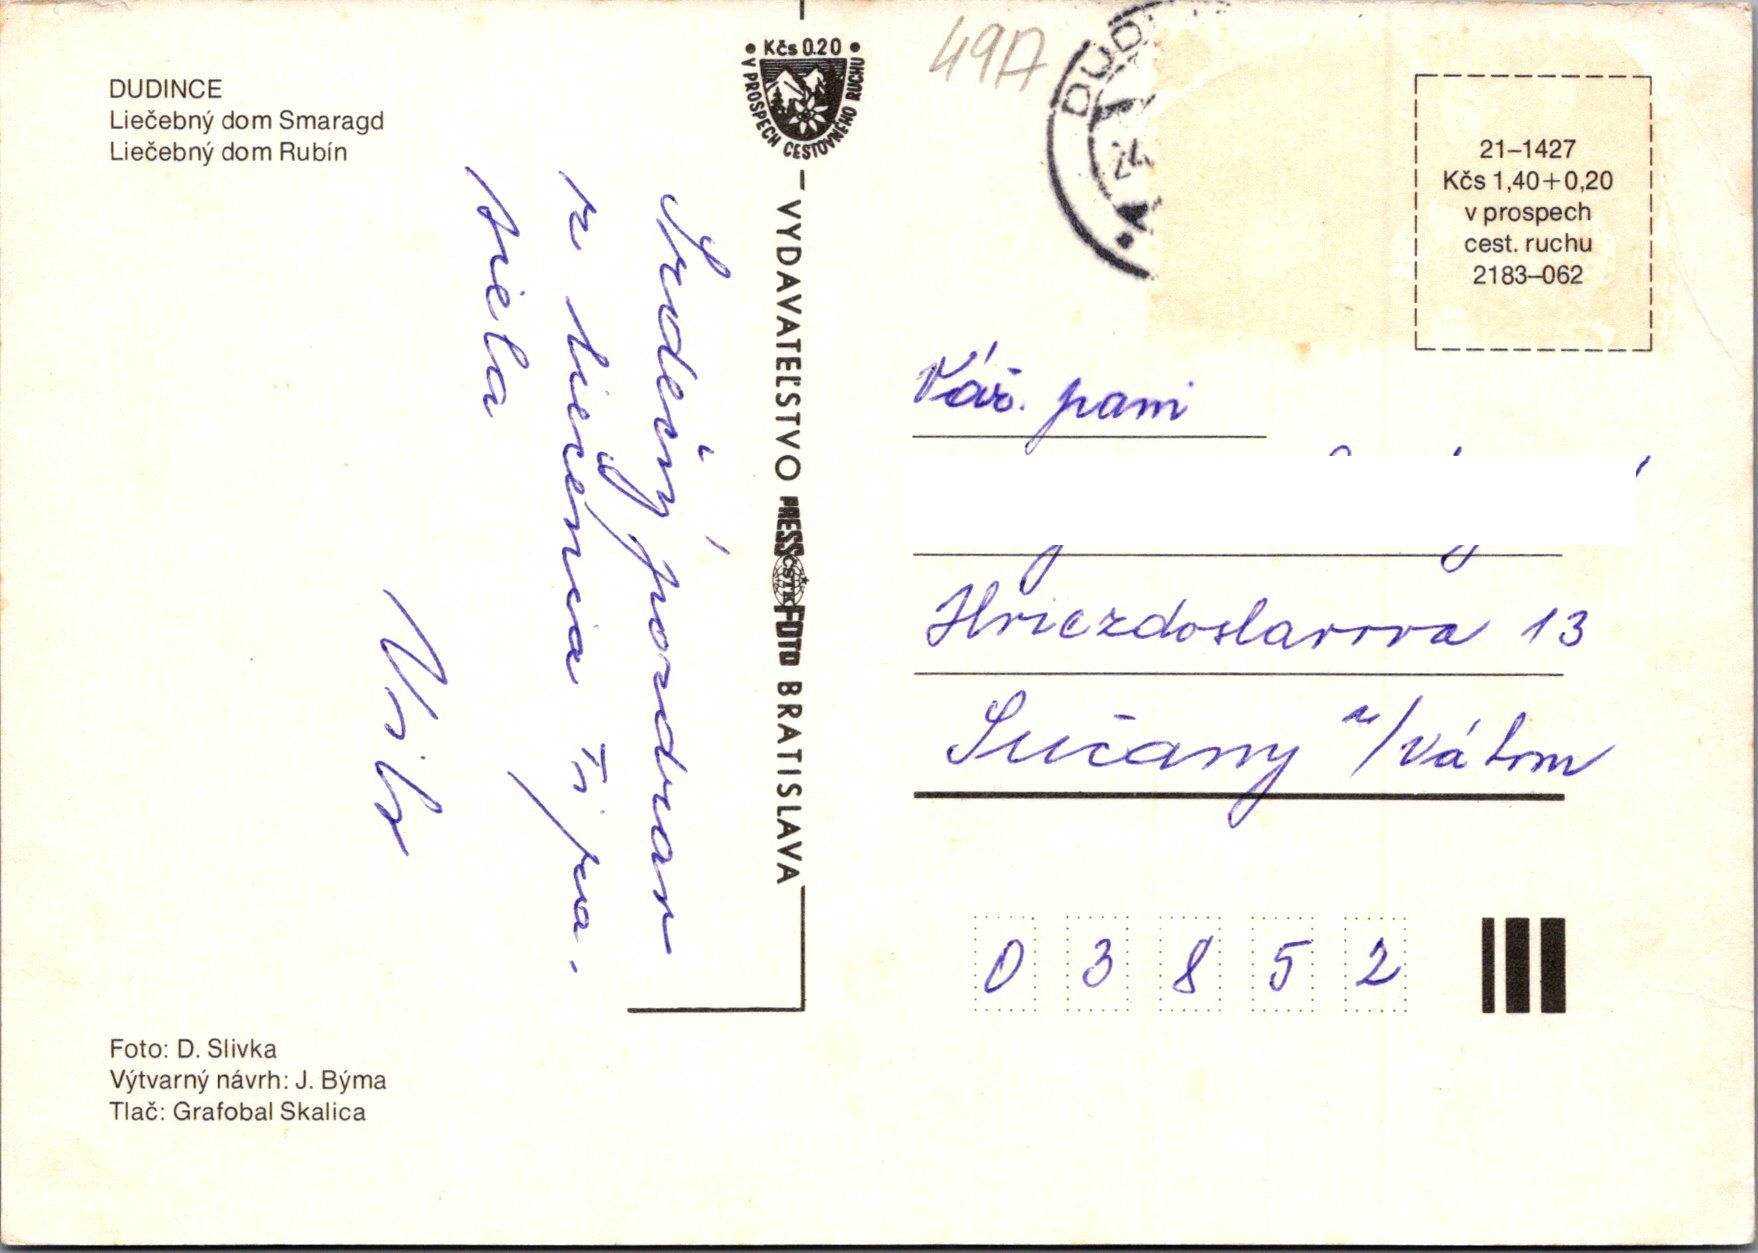 DUDINCE
Liečebný dom Smaragd
Liečebný dom Rubín
Srdečný pozdrav
z liečenia Ti po-
siela
Kčs 0.20
V PROSPECH CESTOVNÉHO RUCHU
VYDAVATEĽSTVO PRESSFOTO BRATISLAVA
ČSTK
49A
DUD
24
21–1427
Kčs 1,40+0,20
v prospech
cest. ruchu
2183–062
Váž. pani
Hviezdoslavova 13
Sučany n/Váhom
03852
Foto: D. Slivka
Výtvarný návrh: J. Býma
Tlač: Grafobal Skalica